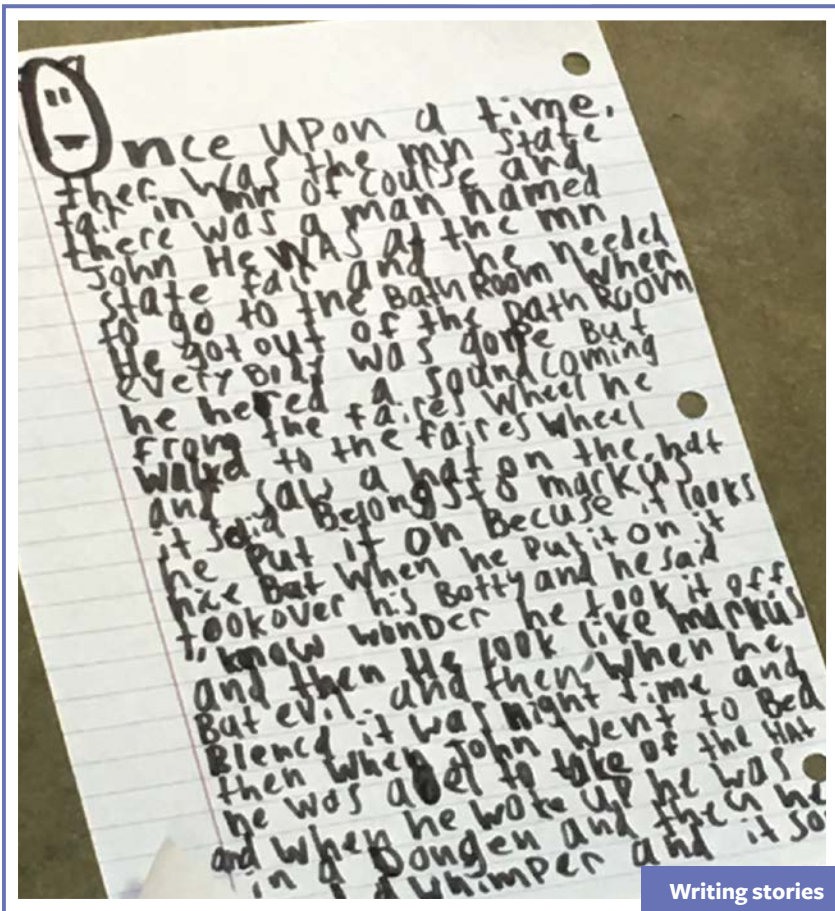 Once UPon a time,
ther was the mn state
fair in mn of course and
there was a man named
John He WAS at the mn
state fair and he needed
to go to the BathRoom When
He got out of the bathRoom
everyBody was gone But
he hered a sound coming
from the faires wheel he
walkd to the faires wheel
and saw a hat on the hat
it said Belongs to markus
he Put it on Becuse it looks
nice But when he Put it on it
tookover his Botty and he said
know wonDer he took it off
and then He look like markus
But evil and then when he
Blencd it was night time and
then when John went to Bed
he was abel to take of the HAt
and when he woke up he was
in a Dongen and then he
a whimper and it so
Writing stories